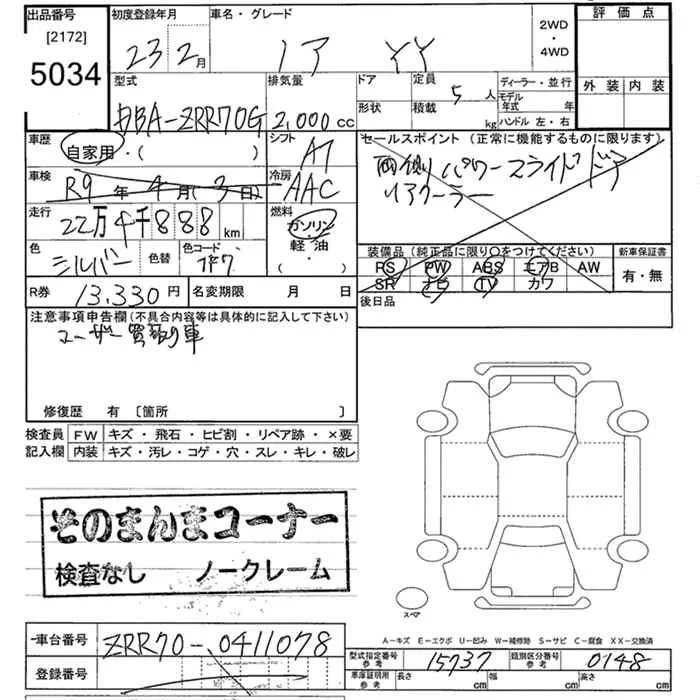 出品番号
[2172]
5034
初度登録年月
23 2月
車名・グレード
ノア YY
2WD
・
4WD
評価点
外装 内装
型式
DBA-ZRR70G
排気量
2,000 cc
ドア
形状
定員
5人
積載 kg
ディーラー・並行
モデル年式 年
ハンドル 左・右
車歴
自家用・( )
シフト
AT
車検
R9年4月(3日)
冷房
AAC
走行
22万4千888 km
燃料
ガソリン
軽油
( ・ )
色
シルバー
色替
色コード
R券 13,330円
名変期限 月 日
セールスポイント (正常に機能するものに限ります)
両側パワースライドドア
リアクーラー
装備品 (純正品に限り○をつけてください)
新車保証書
PS PW ABS エアB AW
SR ナビ TV カワ
有・無
後日品
注意事項申告欄(不具合内容等は具体的に記入して下さい)
ユーザー買取り車
修復歴 有 〔箇所 〕
検査員 FW キズ・飛石・ヒビ割・リペア跡・×要
記入欄 内装 キズ・汚レ・コゲ・穴・スレ・キレ・破レ
そのまんまコーナー
検査なし ノークレーム
スペア
A-キズ E-エクボ U-凹み W-補修跡 S-サビ C-腐食 XX-交換済
車台番号 ZRR70-0411078
登録番号
型式指定番号
参考
15737
類別区分番号
参考
0148
車庫証明用
参考
長さ cm 幅 cm 高さ cm